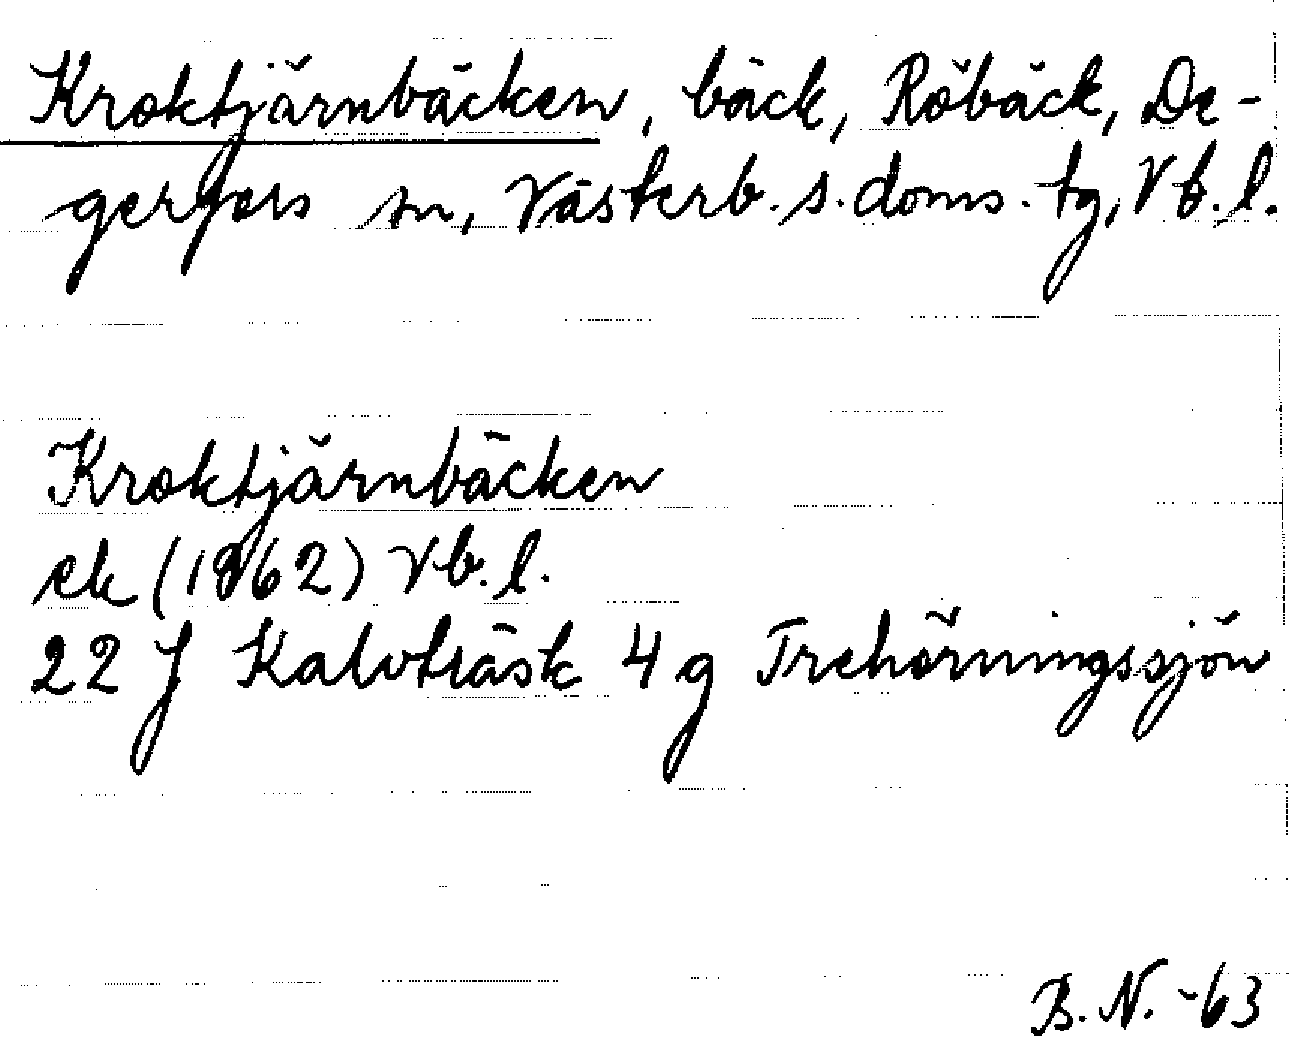 Kroktjärnbäcken, bäck, Röbäck, De-
gerfors sn, Västerb. s. doms. tg, Vb. l.
Kroktjärnbäcken
ek (1962) Vb. l.
22 J Kalvträsk 4 g Trehörningssjön
B. N. -63